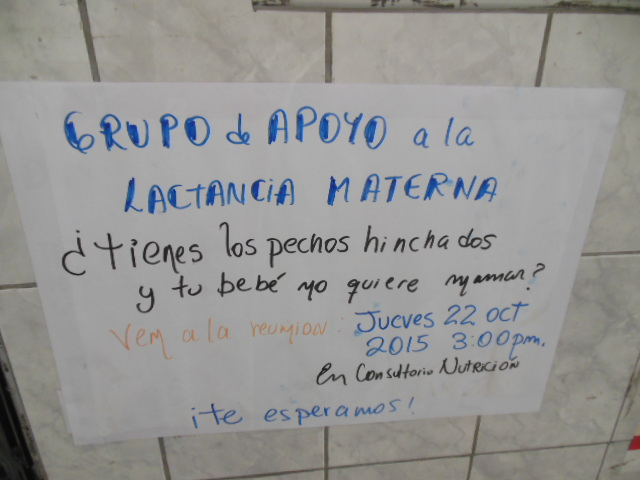 GRUPO de APOYO a la
LACTANCIA MATERNA
¿tienes los pechos hinchados
y tu bebé no quiere mamar?
Ven a la reunion: Jueves 22 oct
2015 3:00pm.
En Consultorio NUTRICIÓN
¡te esperamos!